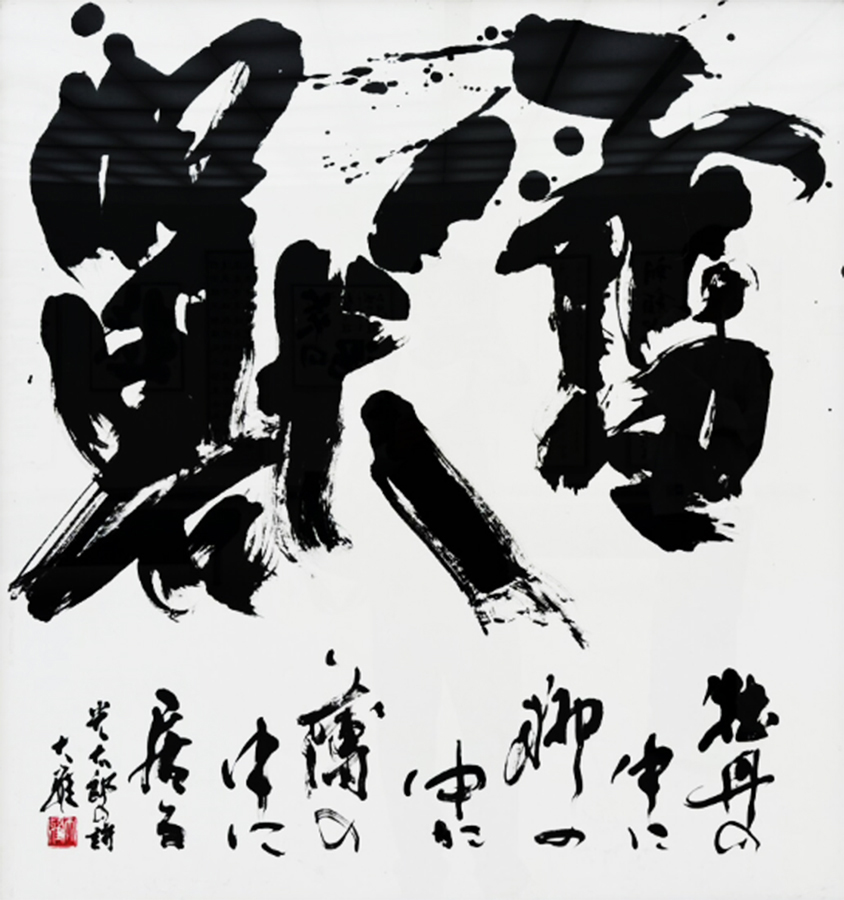 雷獸
牡丹の
中に
柳の
中に
の
中に
居る
光太郎の詩
大雁